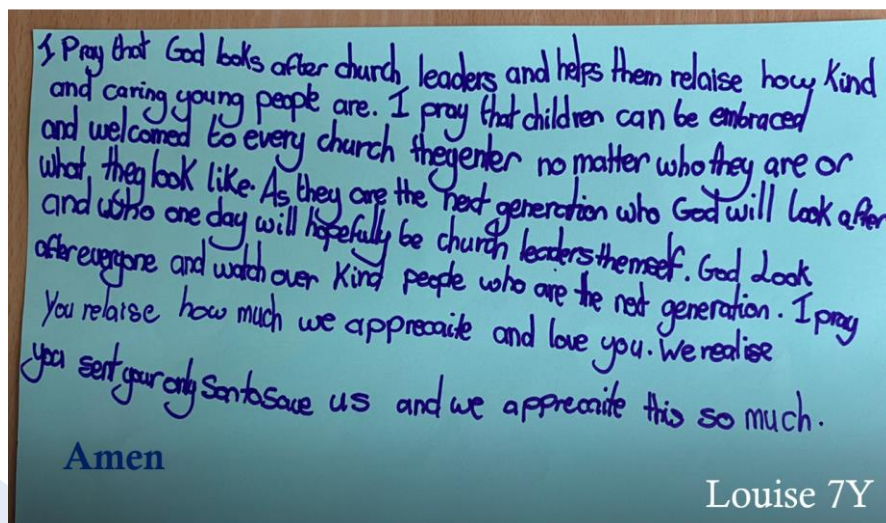 I Pray that God looks after church leaders and helps them relaise how Kind
and caring young people are. I pray that children can be embraced
and welcomed to every church they enter no matter who they are or
what they look like. As they are the next generation who God will look after
and who one day will hopefully be church leaders themself. God Look
after everyone and watch over Kind people who are the next generation. I pray
You relaise how much we apprecaite and love you. We realise
you sent your only Son to Save us and we apprecaite this so much.
Amen
Louise 7Y